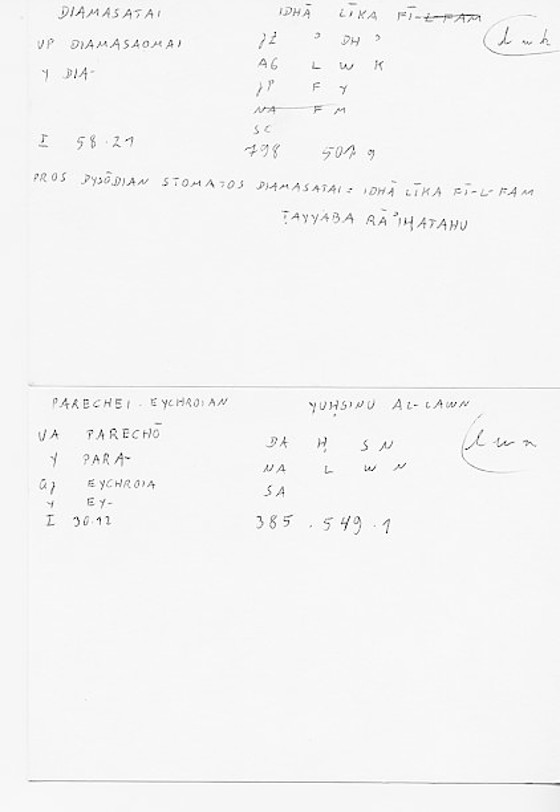 DIAMASATAI IDHĀ LĪKA FĪ-L-FAM
VP DIAMASAOMAI JZ ʾ DH ʾ l w k
Y DIA- AG L W K
JP F Y
NA F M
SC
I 58.21 798 501 9
PROS DYSŌDIAN STOMATOS DIAMASATAI: IDHĀ LĪKA FĪ-L-FAM
ṬAYYABA RĀʾIḤATAHU
PARECHEI. EYCHROIAN YUḤSINU AL-LAWN
VA PARECHŌ BA Ḥ S N l w n
Y PARA- NA L W N
EYCHROIA SA
Y EY-
I 30.12 385.549.1